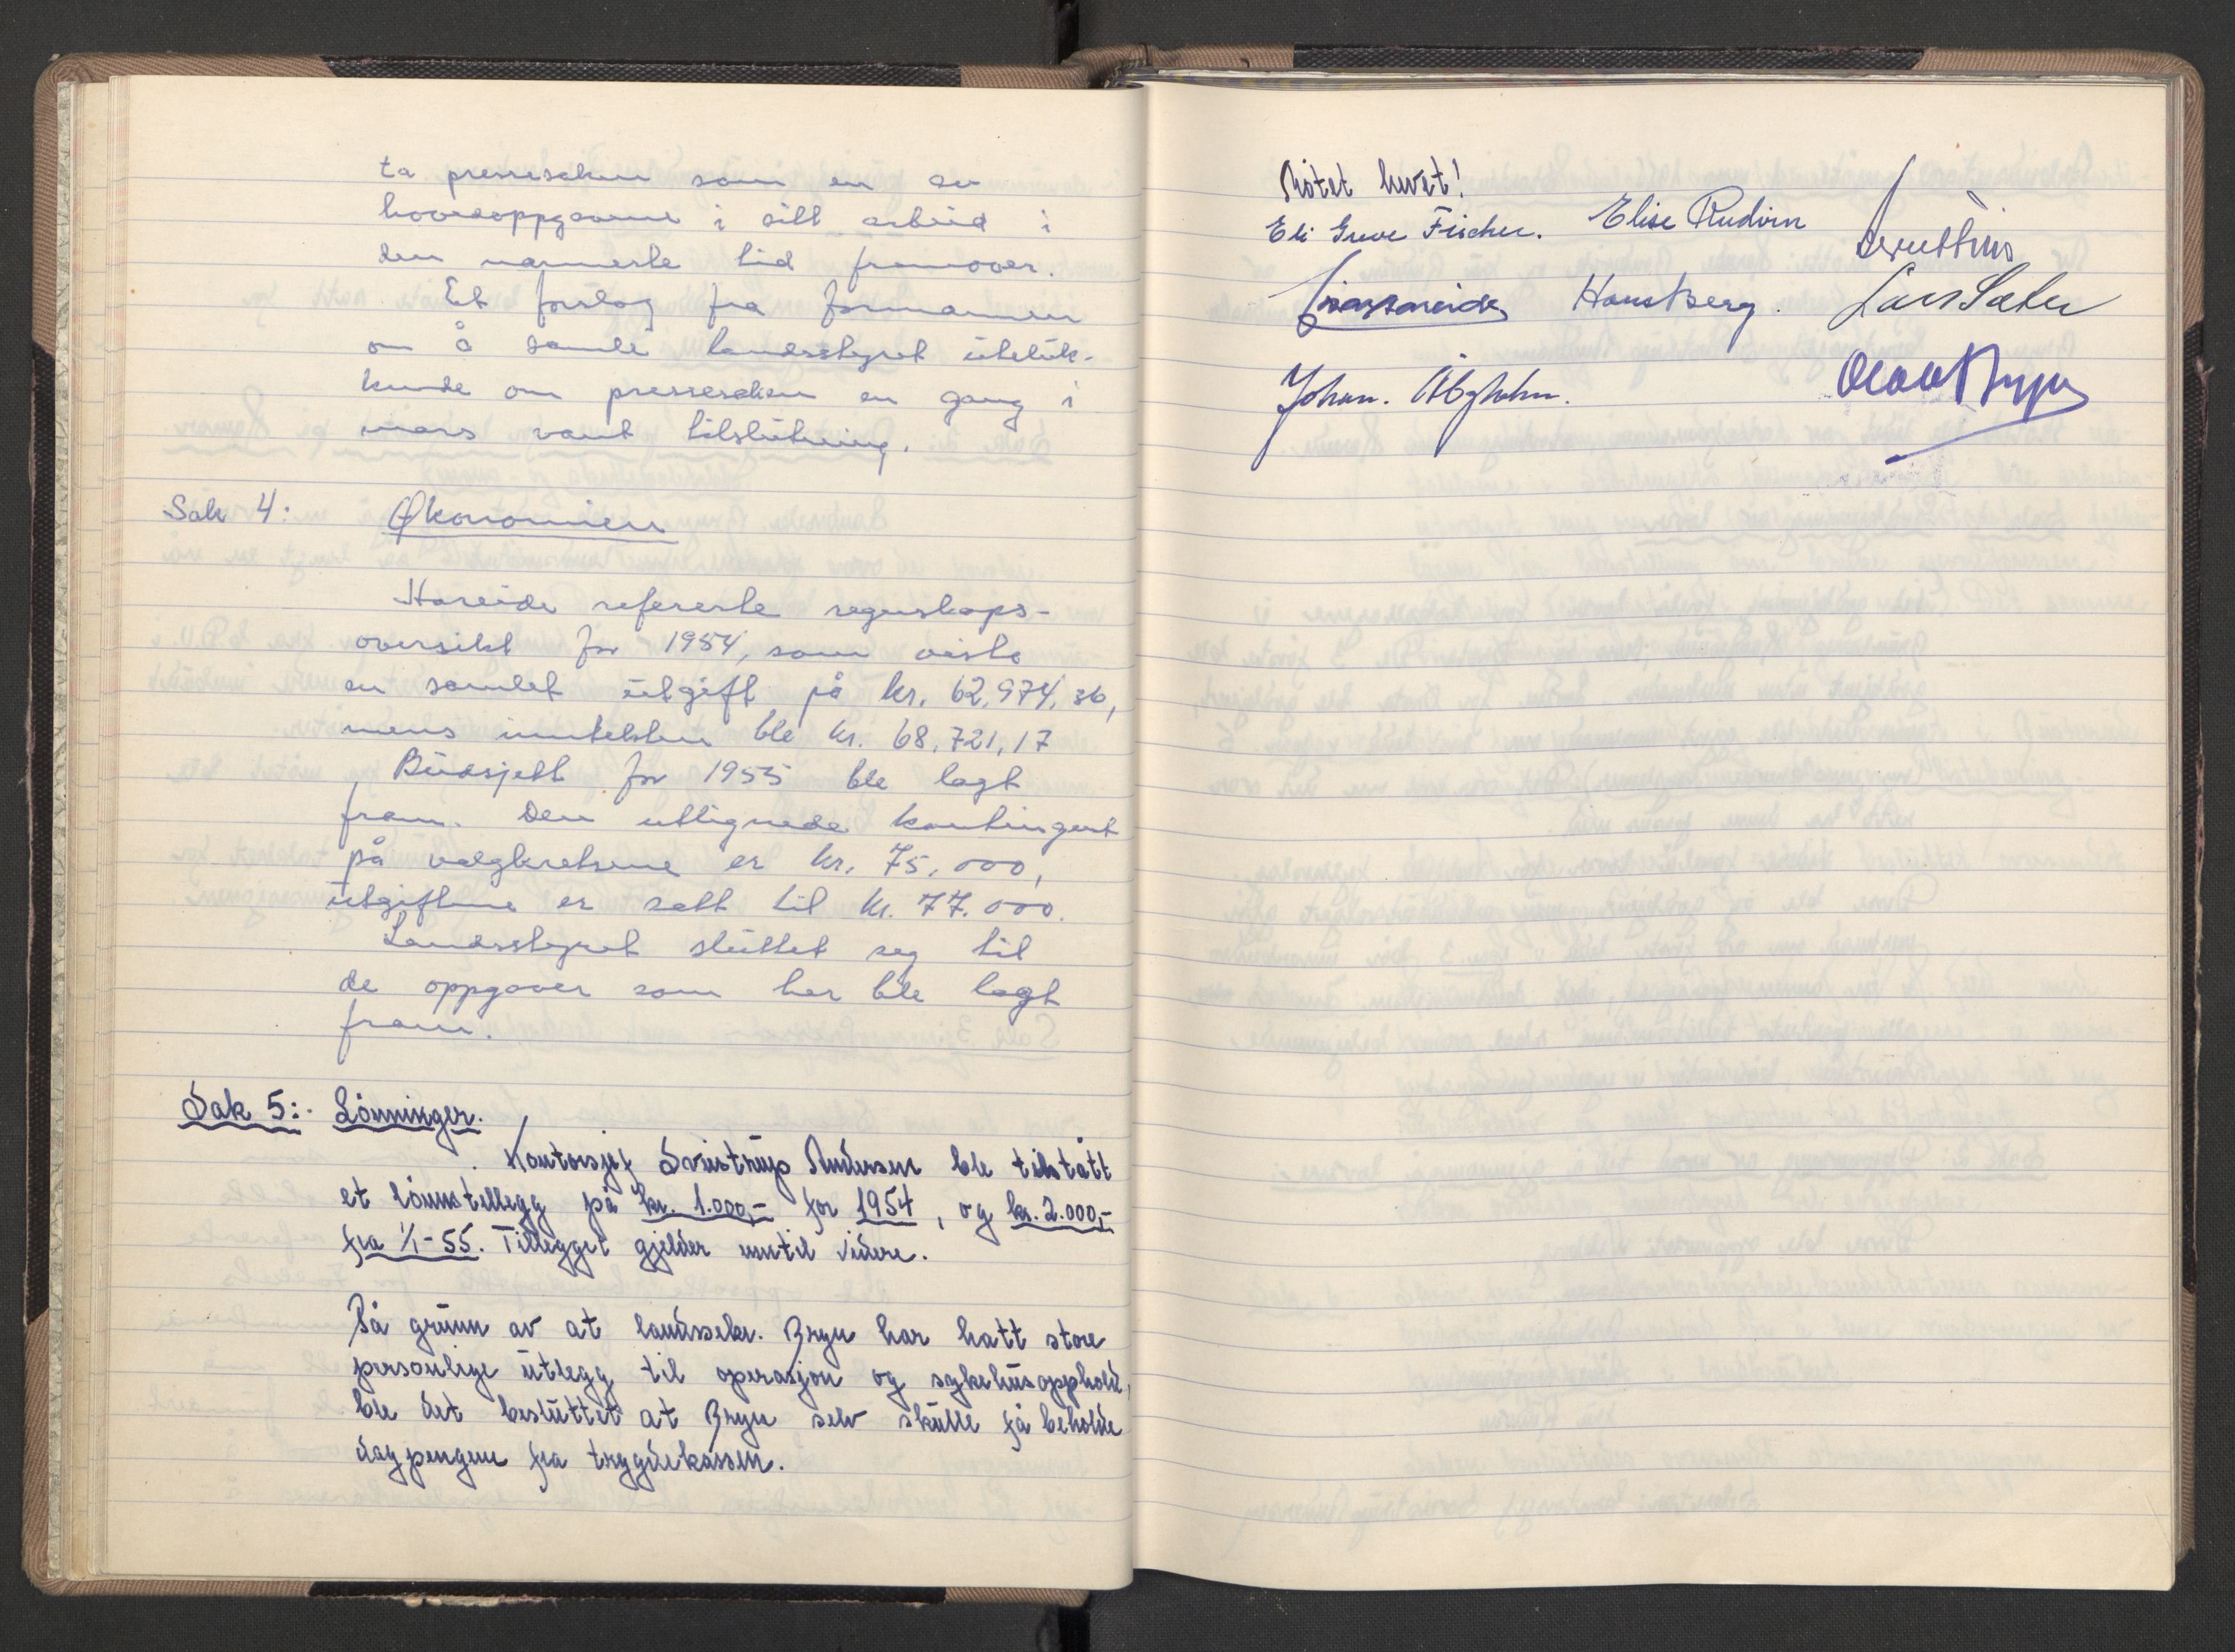 ta pressesaken som en av
hovedoppgavene i sitt arbeid i
den nærmeste tid framover.
Et forslag fra formannen
om å samle landsstyret utelük-
kende om pressesaken en gang i
mars vant tilslutning.
Sak 4: Økonomien
Hareide refererte regnskaps-
oversikt for 1954, som viste
en samlet utgift på kr. 62,974,36,
mens inntekten ble kr. 68,721,17
Budsjett for 1955 ble lagt
fram. Den utlignede kontingent
på valgkretsene er kr. 75.000,
utgiftene er satt til kr. 77.000.
Landsstyret sluttet seg til
de oppgaver som her ble lagt
fram.
Sak 5:. Lönninger.
Kontorsjef Svistrup Andersen ble tilstått
et lönnstillegg på kr. 1.000,- for 1954, og kr. 2.000,-
fra 1/1-55. Tillegget gjelder inntil videre.
På grunn av at landssekr. Bryn har hatt store
personlige utlegg til operasjon og sykehusopphold,
ble det besluttet at Bryn selv skulle få beholde
dagpengene fra trygdekassen.
Mötet hevet!
Eli Greve Fischer. Elise Rudvin
Hareide Hans Berg. Lars Sæter
Johan.
Olav Bryn